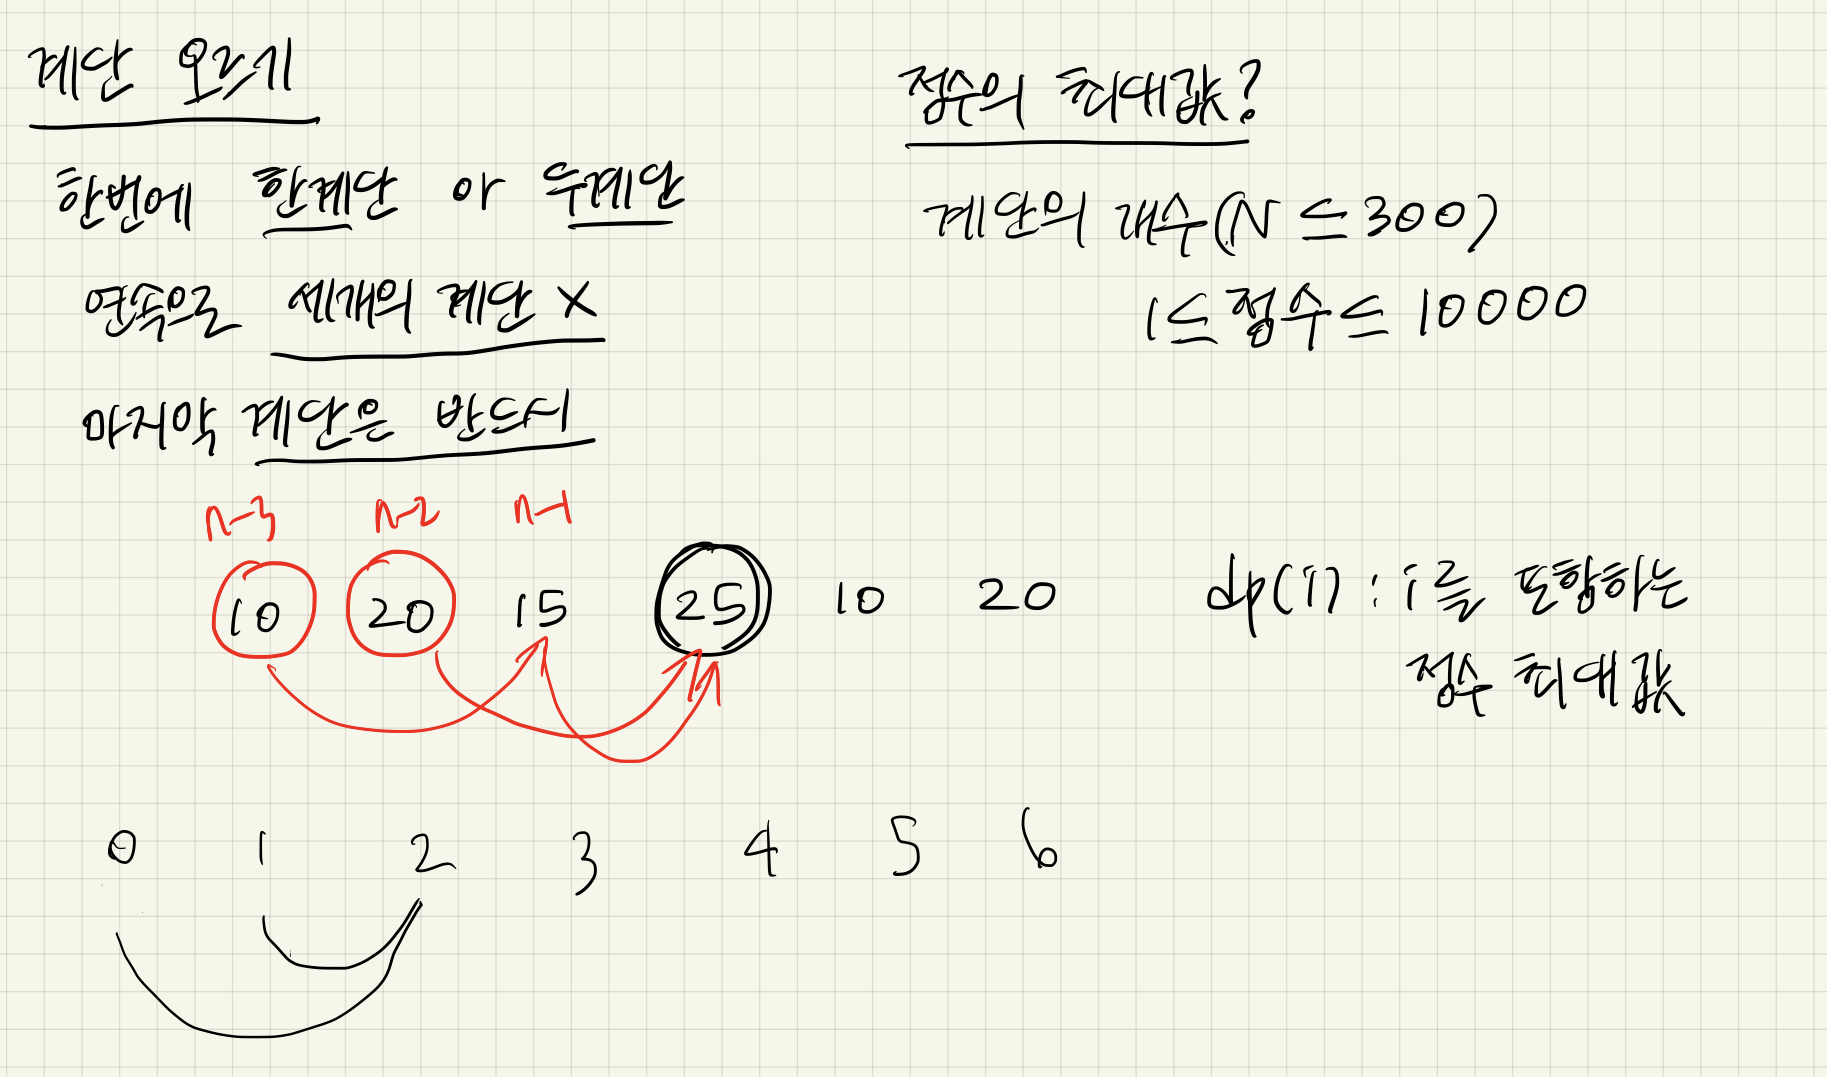 계단 오르기
한번에 한계단 or 두계단
연속으로 세개의 계단 X
마지막 계단은 반드시
점수의 최대값?
계단의 개수(N ≤ 300)
1 ≤ 점수 ≤ 10000
n-3 n-2 n-1
10 20 15 25 10 20
dp(i) : i를 포함하는
점수 최대값
0 1 2 3 4 5 6